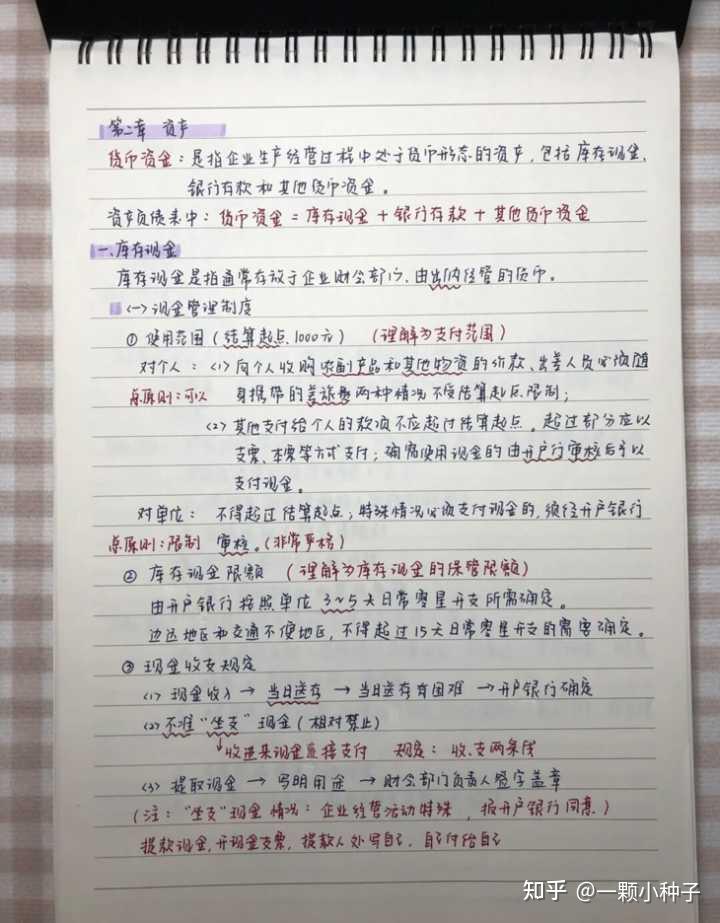 第二章 资产
货币资金：是指企业生产经营过程中处于货币形态的资产，包括库存现金、
银行存款和其他货币资金。
资产负债表中：货币资金 = 库存现金 + 银行存款 + 其他货币资金
一、库存现金
库存现金是指通常存放于企业财会部门、由出纳经管的货币。
(一)现金管理制度
① 使用范围(结算起点1000元) (理解为支付范围)
对个人：(1)向个人收购农副产品和其他物资的价款、出差人员必须随
总原则：可以 身携带的差旅费两种情况不受结算起点限制；
(2)其他支付给个人的款项不应超过结算起点。超过部分应以
支票、本票等方式支付；确需使用现金的由开户行审核后予以
支付现金。
对单位：不得超过结算起点；特殊情况必须支付现金的，须经开户银行
总原则：限制 审核。(非常严格)
② 库存现金限额 (理解为库存现金的保管限额)
由开户银行按照单位3~5天日常零星开支所需确定。
边远地区和交通不便地区，不得超过15天日常零星开支的需客确定。
③ 现金收支规定
(1) 现金收入 → 当日送存 → 当日送存有困难 → 开户银行确定
(2)不准“坐支”现金(相对禁止)
↓收进来现金直接支付 规定：收、支两条线
(3) 提取现金 → 写明用途 → 财会部门负责人签字盖章
(注：“坐支”现金情况：企业经营活动特殊，报开户银行同意)
提款现金，开现金支票，提款人处写自己，自己付给自己
知乎 @一颗小种子